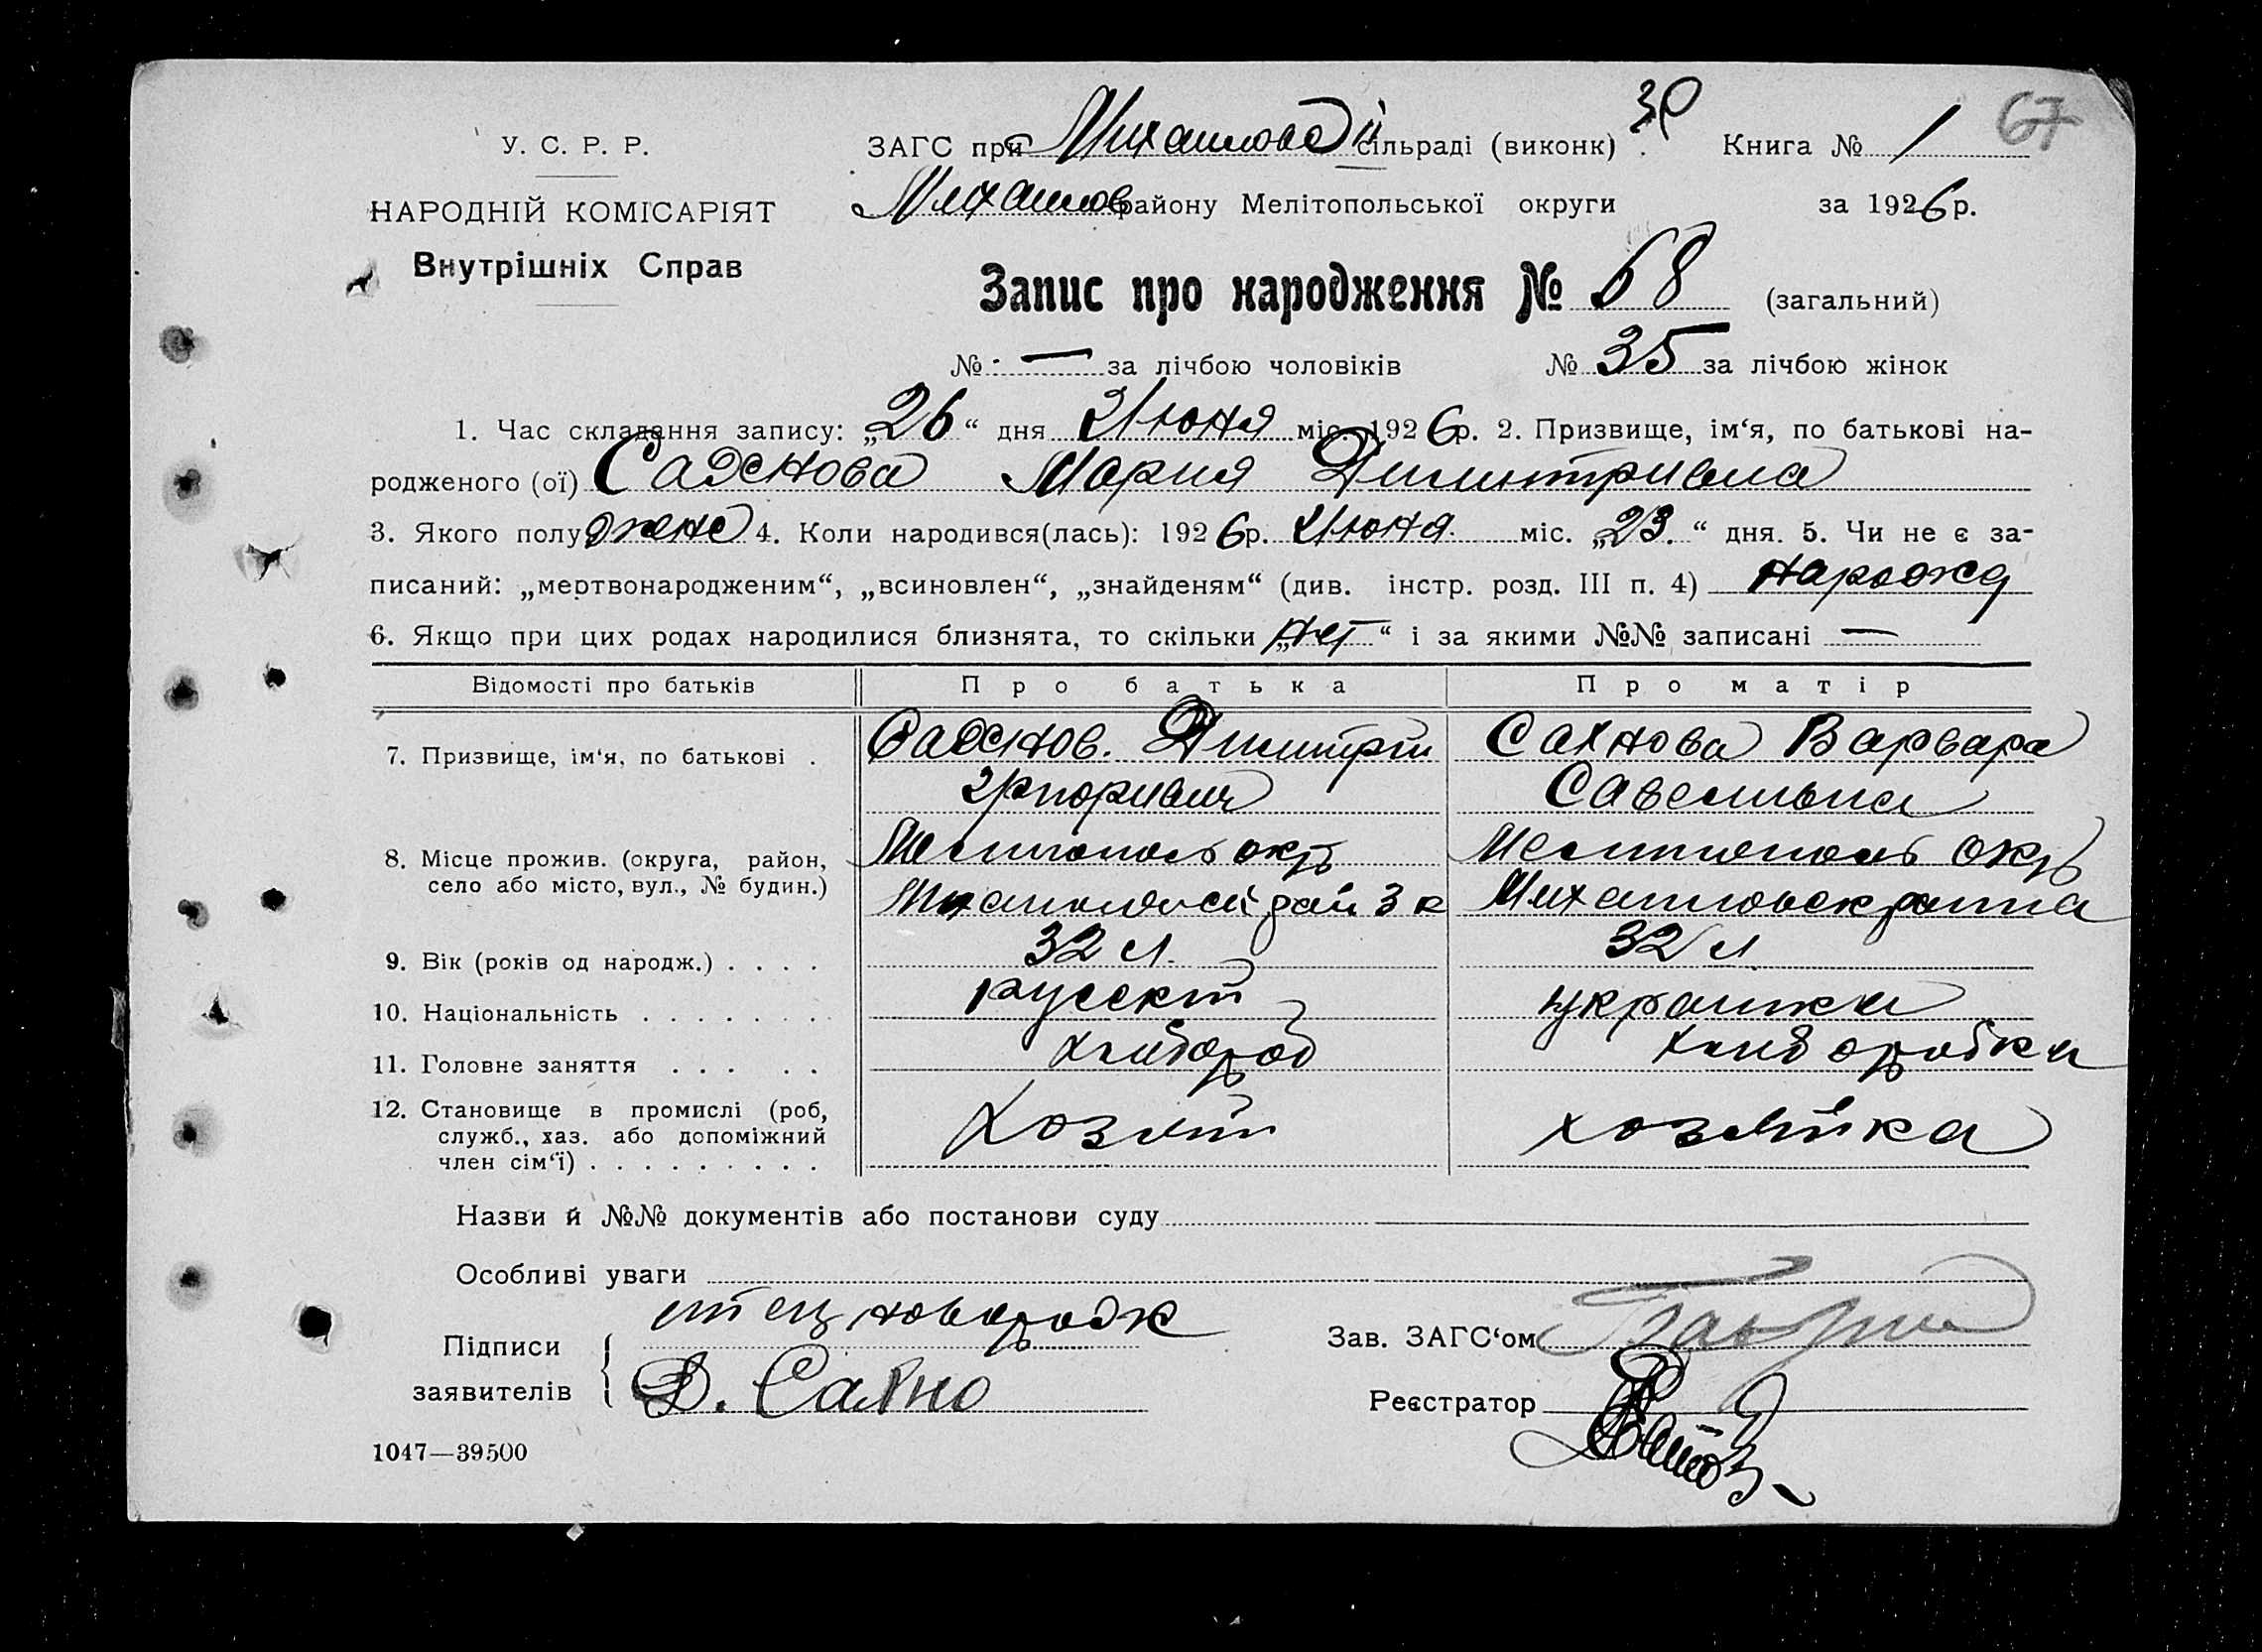 67
У. С. Р. Р.
ЗАГС при Михайловс й сільраді (виконк) Книга № 1
НАРОДНІЙ КОМІСАРІЯТ
Михайлов району Мелітопольської округи за 1926 р.
Внутрішніх Справ
Запис про народження № 68 (загальний)
№ — за лічбою чоловіків № 35 за лічбою жінок
1. Час складання запису: „26“ дня Июня міс. 1926 р. 2. Призвище, ім‘я, по батькові на-
родженого (ої) Мария
3. Якого полу жене 4. Коли народився(лась): 1926 р. Июня міс. „23.“ дня. 5. Чи не є за-
писаний: „мертвонародженим“, „всиновлен“, „знайденям“ (див. інстр. розд. III п. 4) нарожд
6. Якщо при цих родах народилися близнята, то скільки „нет“ і за якими №№ записані —
Відомості про батьків Про батька Про матір
7. Призвище, ім‘я, по батькові . Димитрий Сахнова Варвара
8. Місце прожив. (округа, район, Мелитополь окр Мелитополь окр
село або місто, вул., № будин.)
9. Вік (років од народж.) . . . . 32 л. 32 л
10. Національність . . . . . . . русский украинка
11. Головне заняття . . . . . хлибороб хлиборобка
12. Становище в промислі (роб, хозяин хозяйка
служб., хаз. або допоміжний
член сім‘ї) . . . . . . . . .
Назви й №№ документів або постанови суду
Особливі уваги
отец новорожд
Підписи Зав. ЗАГС‘ом
заявителів Д. Сахно Реєстратор
1047—39500